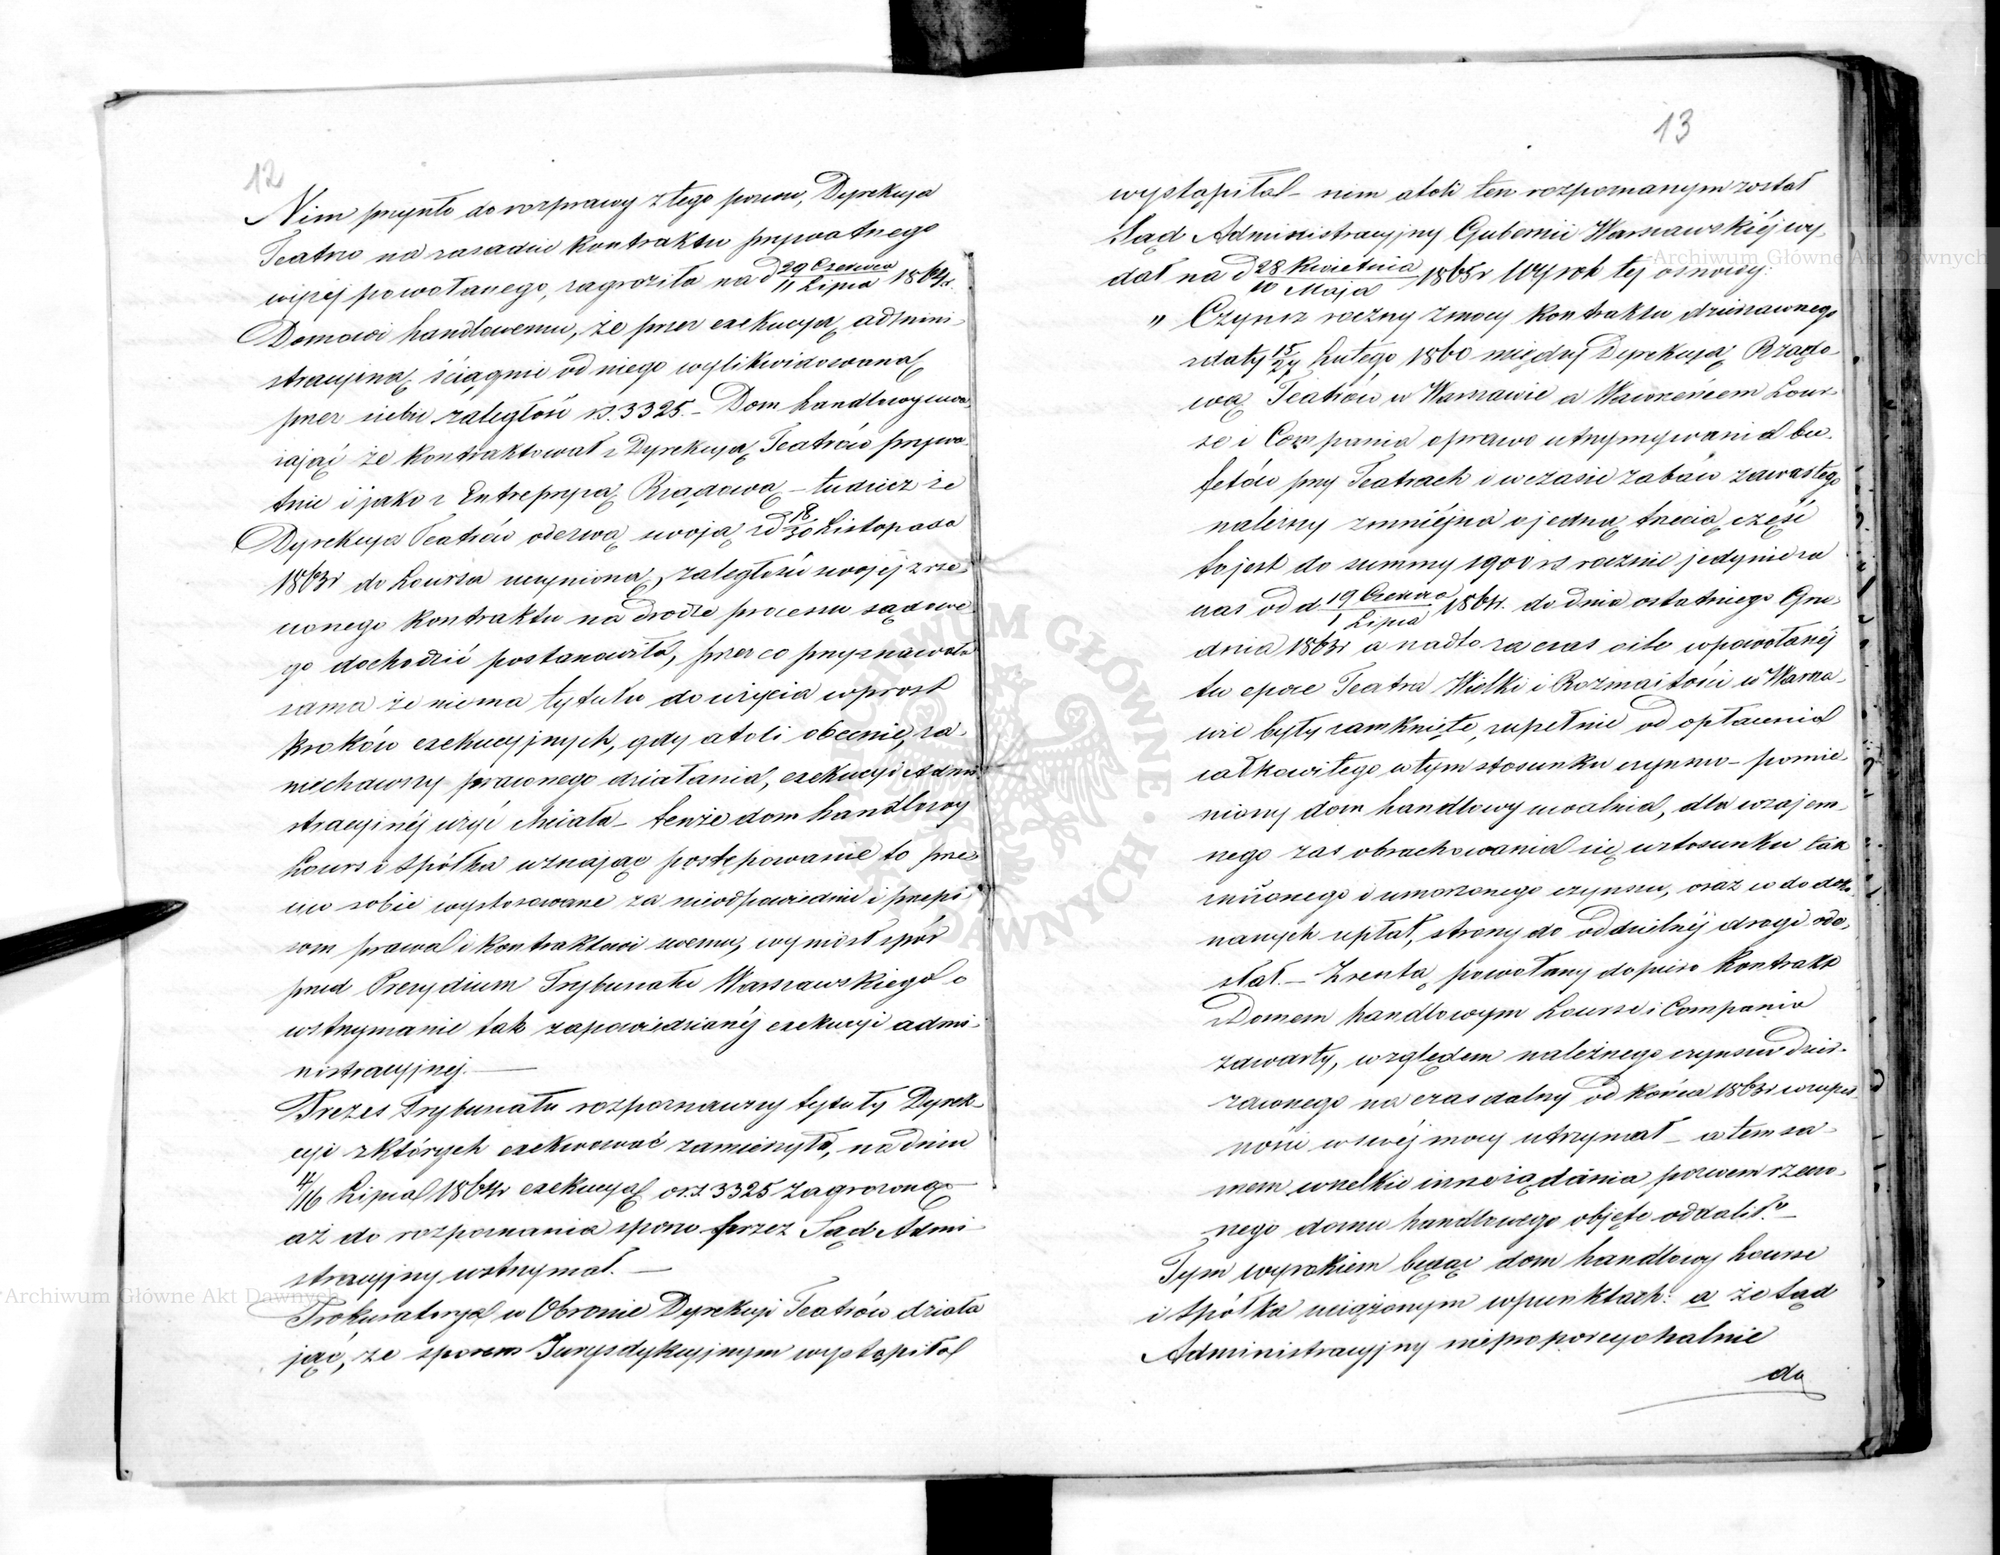 12
Nim przyszło do rozprawy z tego pozwu, Dyrekcya
Teatru na zasadzie kontraktu prywatnego
wyżej powołanego, zagroziła na d 29 Czerwca / 11 Lipca 1864r.
Domowi handlowemu, że przez exekucyą admini-
stracyjną, ściągnie od niego wylikwidowaną
przez siebie zaległość rs. 3325. – Dom handlowy uwa-
żając że kontraktował z Dyrekcyą Teatrów prywa-
tnie i jako z Entrepryzą Rządową – tudzież że
Dyrekcya Teatrów odezwą swoją z d 18/30 Listopada
1863r do Loursa uczynioną, zaległości swojéj z rze-
czonego kontraktu na drodze procesu sądowe
go dochodzić postanowiła, przez co przyznawała
sama że niema tytułu do użycia wprost
kroków exekucyjnych, gdy atoli obecnie, za-
niechawszy prawnego działania, exekucyi Admi-
stracyjnéj użyć chciała – tenże dom handlowy
Lours i Spółka uznając postępowanie to prze-
ciw sobie wystosowane za nieodpowiednie i przepi-
som prawa i kontraktowi swemu, wyniósł spór
przed Prezydium Trybunału Warszawskiego o
wstrzymanie tak zapowiedzianéj exekucyi admi-
nistracyjnej. —
Prezes Trybunału rozpoznawszy tytuły Dyrek-
cyi z których exekwować zamierzyła, na dniu
4/16 Lipca 1864r exekucyą o rs 3325 zagrożoną
aż do rozpoznania sporu przez Sąd Admi-
stracyjny wstrzymał. —
Prokuratorya w Obronie Dyrekcyi Teatrów działa
jąc, ze sporem Jurysdykcyjnym wystąpiła
13
wystąpiła – nim atoli ten rozpoznanym został
Sąd Administracyjny Gubernii Warszawskiéj wy-
dał na d 28 Kwietnia / 10 Maja 1865r Wyrok téj osnowy:
" Czynsz roczny z mocy kontraktu dzierżawnego
z daty 15/27 Lutego 1860 między Dyrekcyą Rządo-
wą Teatrów w Warszawie a Wawrzeńcem Lour-
se i Compania o prawo utrzymywania bu-
fetów przy Teatrach i w czasie zabaw zawartego
należny zmniejsza o jedną trzecią część
to jest do summy 1900 rs rocznie jedynie za
czas od d 19 Czerwca / 1 Lipca 1861r. do dnia ostatniego Gru-
dnia 1863r a nadto za czas o ile w powołanéj
tu epoce Teatra Wielki i Rozmaitości w Warsza-
wie były zamknięte, zupełnie od opłacenia
całkowitego w tym stosunku czynszu – pomie-
niony dom handlowy uwalnia, dla wzajem-
nego zaś obrachowania się w stosunku tak
zniżonego i umorzonego czynszu, oraz w do doko-
nanych upłat, strony do oddzielnéj drogi ode-
słał. – Zresztą powołany dopiero kontrakt
z Domem handlowym Lourse i Compania
zawarty, względem należnego czynszu dzier-
żawnego na czas dalszy od końca 1863r w zupeł-
ności w swéj mocy utrzymał – a tem sa-
mem wszelkie inne żądania pozwem rzeczo-
nego domu handlowego objęte oddalił." –
Tym wyrokiem będąc dom handlowy Lourse
i Spółka uciążonym w punktach: a że Sąd
Administracyjny nieproporcyonalnie
do
Archiwum Główne Akt Dawnych
Archiwum Główne Akt Dawnych
ARCHIWUM GŁÓWNE AKT DAWNYCH